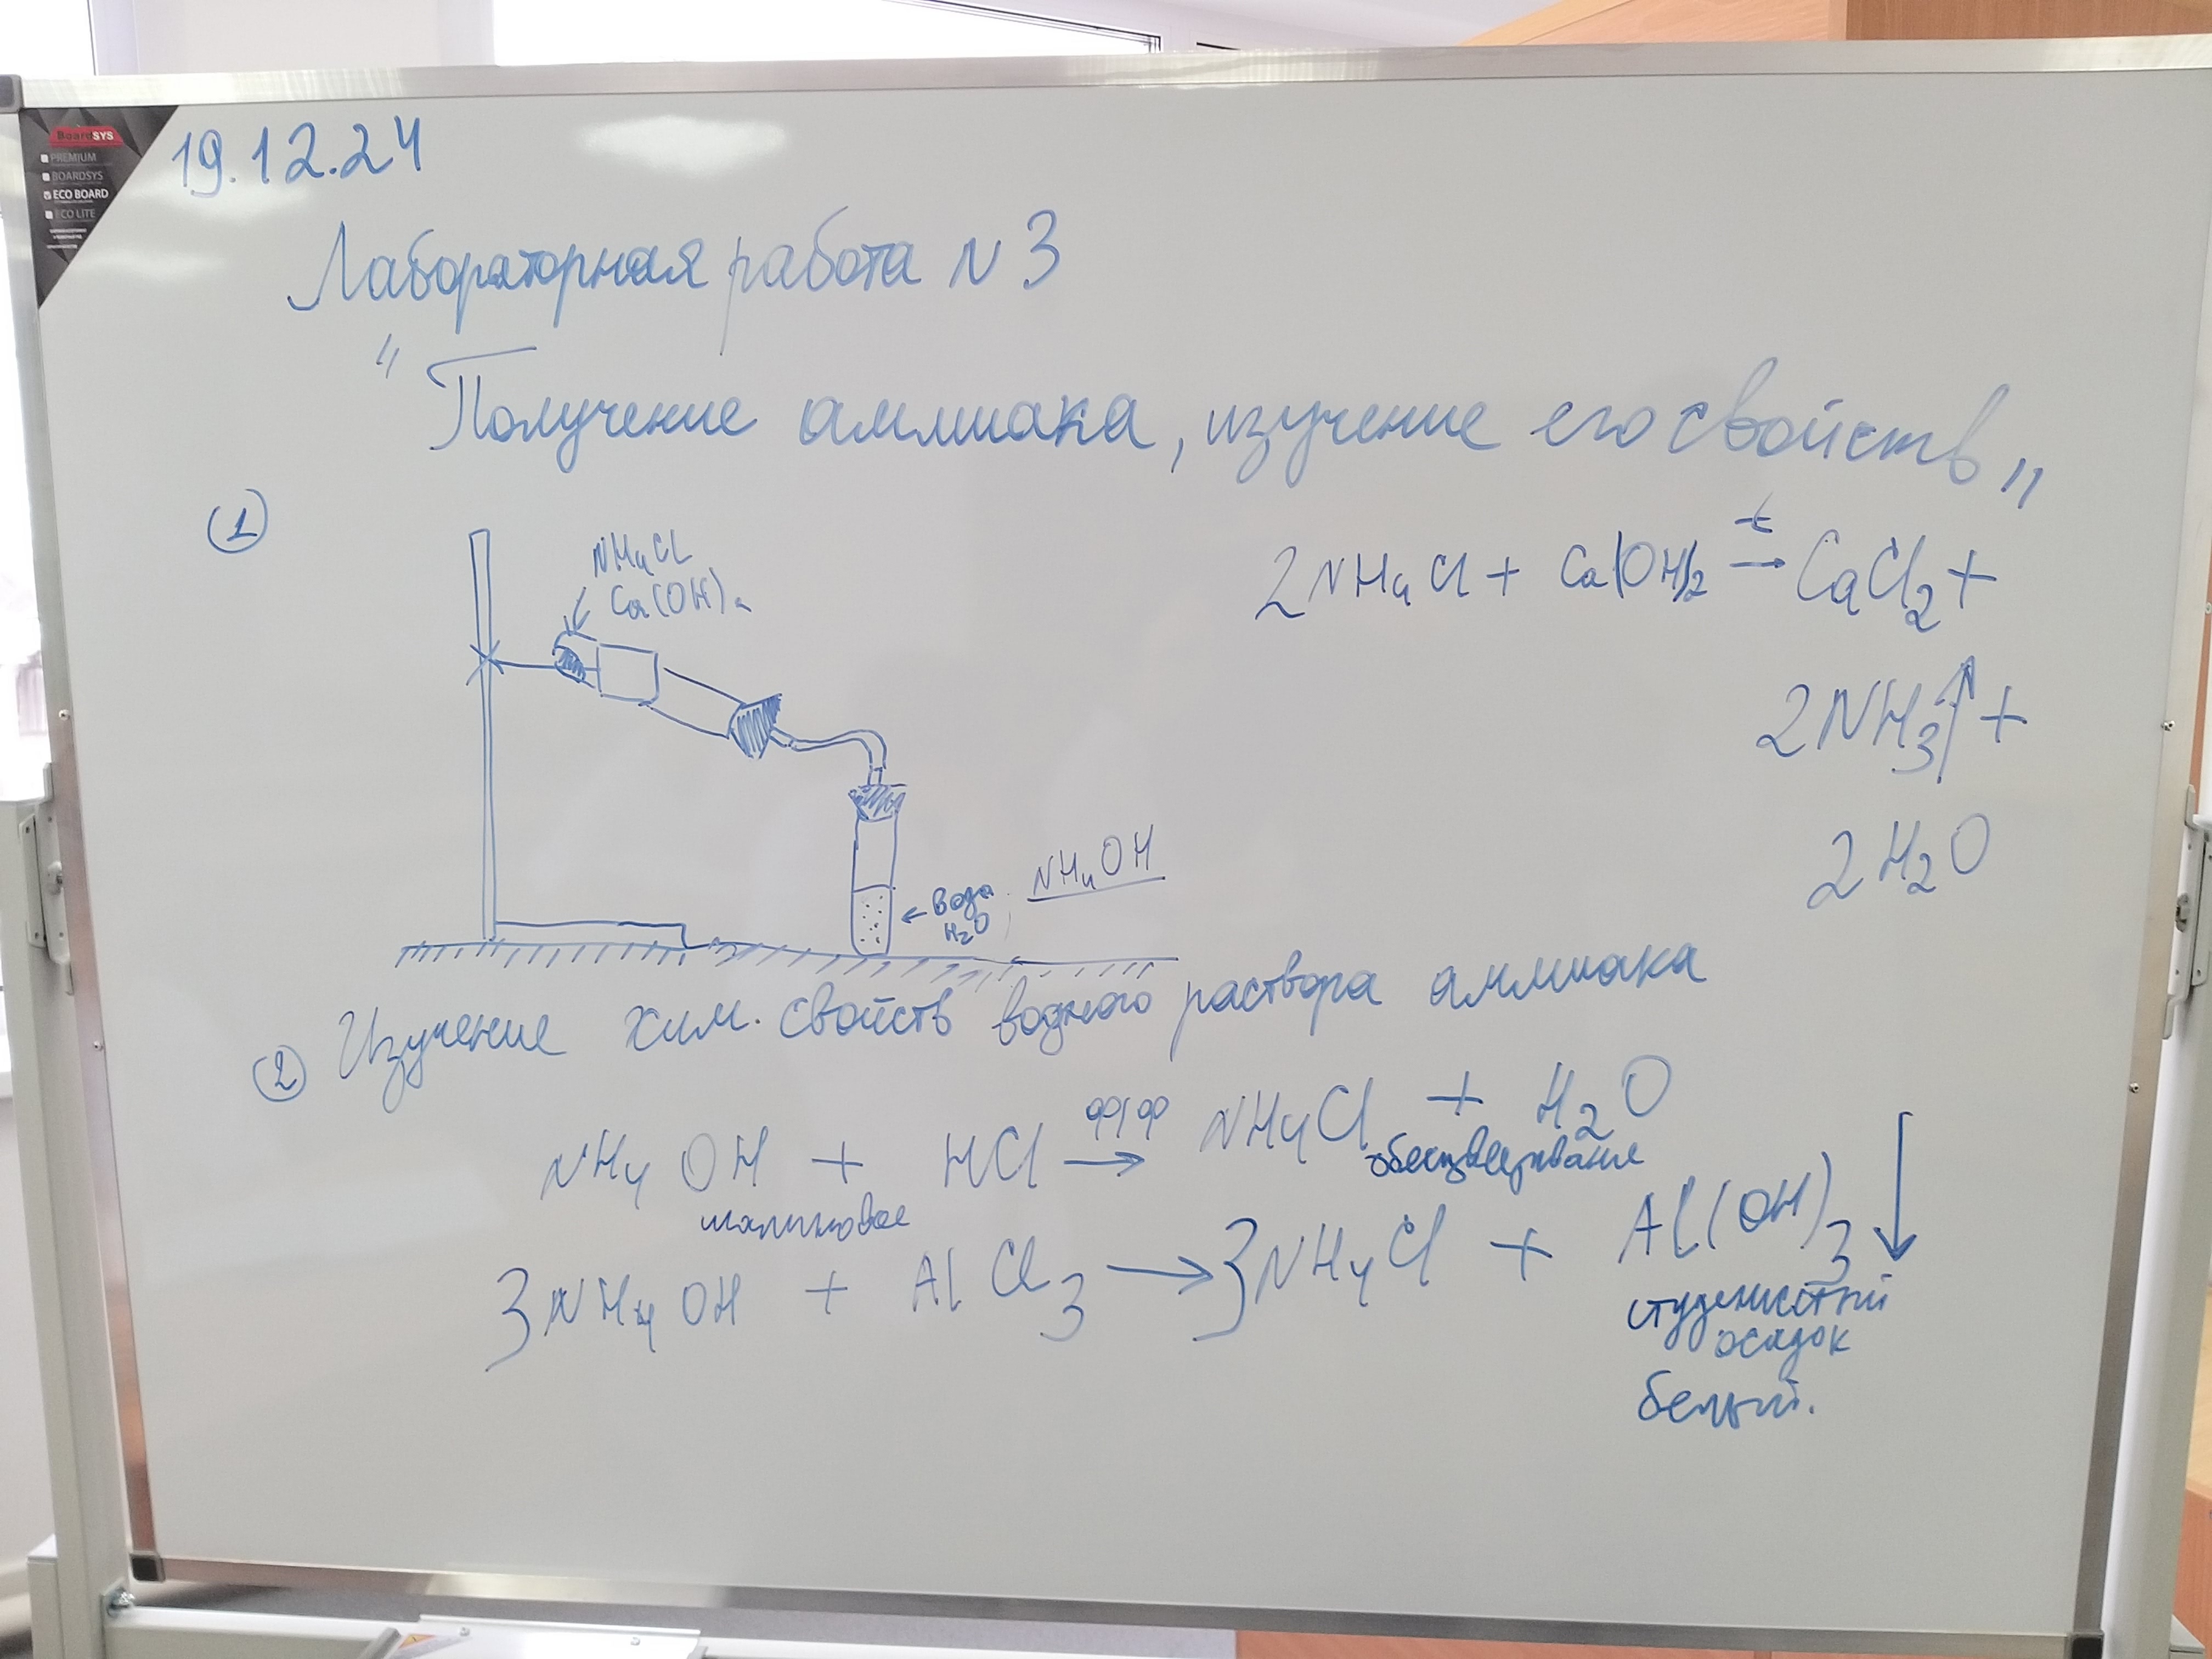 BoardSYS
PREMIUM
BOARDSYS
ECO BOARD
ECO LITE
19.12.24
Лабораторная работа N 3
"Получение аммиака, изучение его свойств"
1
NH4Cl
Ca(OH)2
2NH4Cl + Ca(OH)2 t→ CaCl2 +
2NH3↑ +
2H2O
← вода
H2O
NH4OH
2 Изучение хим. свойств водного раствора аммиака
NH4OH + HCl ф/ф→ NH4Cl + H2O
малиновое обесцвечивание
3NH4OH + AlCl3 → 3NH4Cl + Al(OH)3↓
студенистый
осадок
белый.